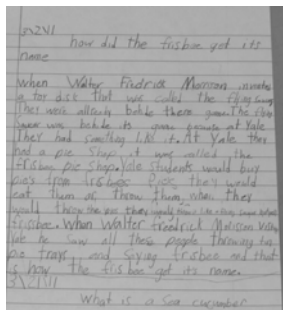 3\2\11
how did the frisbee get its
name
When Walter Fredrick Morrison invented
a toy disk that we called the flying saucer
They were allready behide them game. The flying
Saucer was behide its game because at Yale
They had something like it. At Yale they
had a pie Shop it was called the
frisbee pie Shop. Yale Students would buy
pies from frisbee pies they would
eat them or throw them, when they
would throw the pie they would
frisbee. When Walter fredrick Morison Visited
Yale he saw all these people throwing the
pie trays and Saying frisbee and that
is how the frisbee got its name.
3\21\11
What is a Sea cucumber